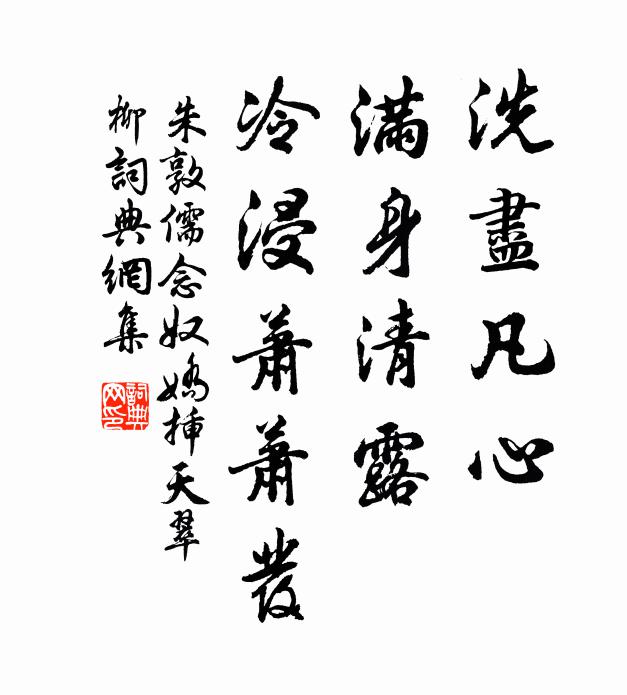 洗盡凡心
滿身清露
冷浸蕭蕭髮
朱敦儒念奴嬌插天翠
柳詞典網集
詞典網印